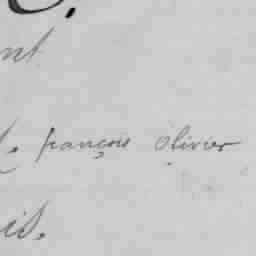 nt
françois olivier
is.